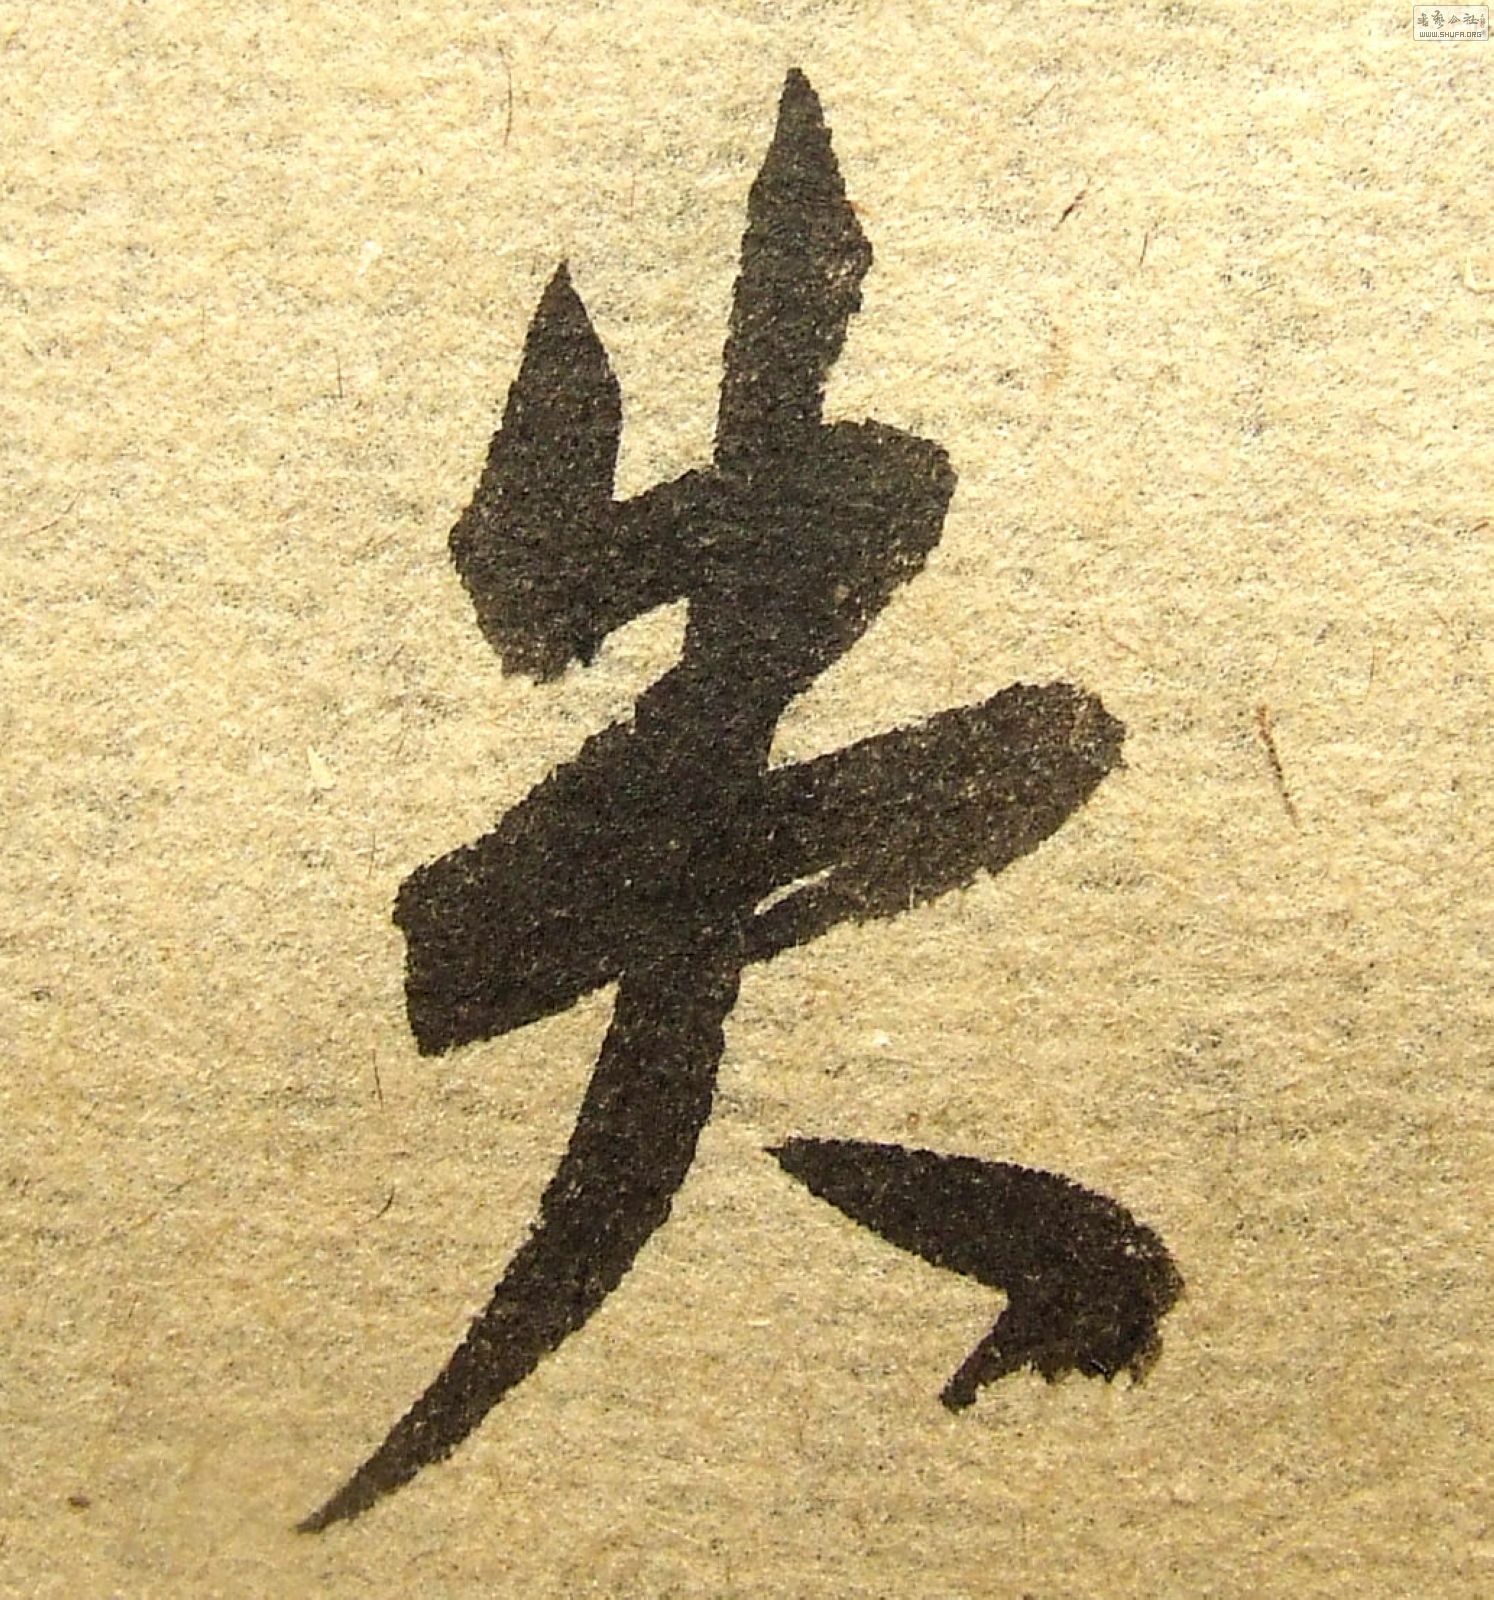 失
书艺公社
WWW.SHUFA.ORG